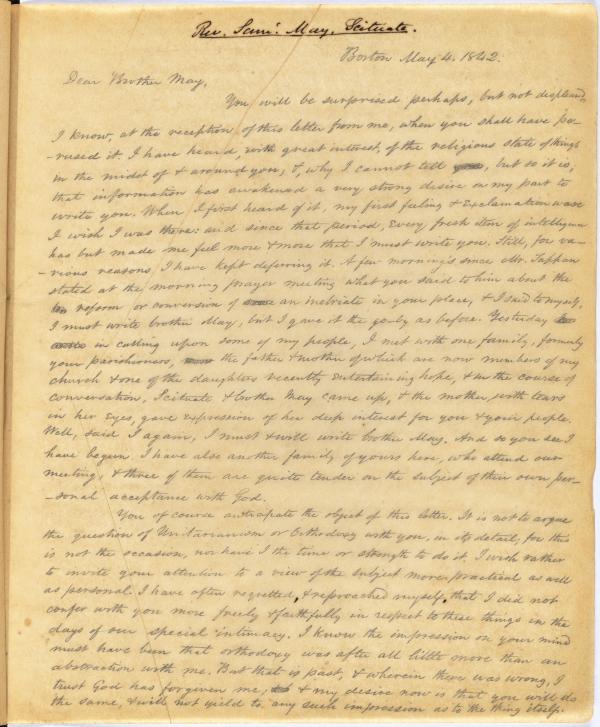 Rev. Saml. May, Scituate.
Boston May 4. 1842.
Dear Brother May,
You will be surprised perhaps, but not displeased,
I know, at the reception of this letter from me, when you shall have pe-
-rused it. I have heard, with great interest, of the religious state of things
in the midst of & around you; &, why I cannot tell, but so it is,
that information has awakened a very strong desire on my part to
write you. When I first heard of it, my first feeling & exclamation was
I wish I was there: and since that period, every fresh item of intelligence
has but made me feel more & more that I must write you. Still, for va-
-rious reasons, I have kept deferring it. A few morning's since Mr. Tappan
stated at the morning prayer meeting what you said to him about the
reform or conversion of an inebriate in your place, & I said to myself,
I must write brother May, but I gave it the go-by as before. Yesterday
in calling upon some of my people, I met with one family, formerly
your parishioners, the father & mother of which are now members of my
church & one of the daughters recently entertaining hope, & in the course of
conversation, Scituate & brother May came up, & the mother, with tears
in her eyes, gave expression of her deep interest for you & your people.
Well, said I again, I must & will write brother May. And so you see I
have begun. I have also another family of yours here, who attend our
meeting, & three of them are quite tender on the subject of their own per-
-sonal acceptance with God.
You of course anticipate the object of this letter. It is not to argue
the question of Unitarianism or Orthodoxy with you, in its detail, for this
is not the occasion, nor have I the time or strength to do it. I wish rather
to invite your attention to a view of the subject more practical as well
as personal. I have often regretted, & reproached myself, that I did not
confer with you more freely & faithfully in respect to these things in the
days of our special intimacy. I know the impression on your mind
must have been that orthodoxy was after all little more than an
abstraction with me. But that is past, & wherein there was wrong, I
trust God has forgiven me, & my desire now is that you will do
the same, & will not yield to any such impression as to the thing itself.